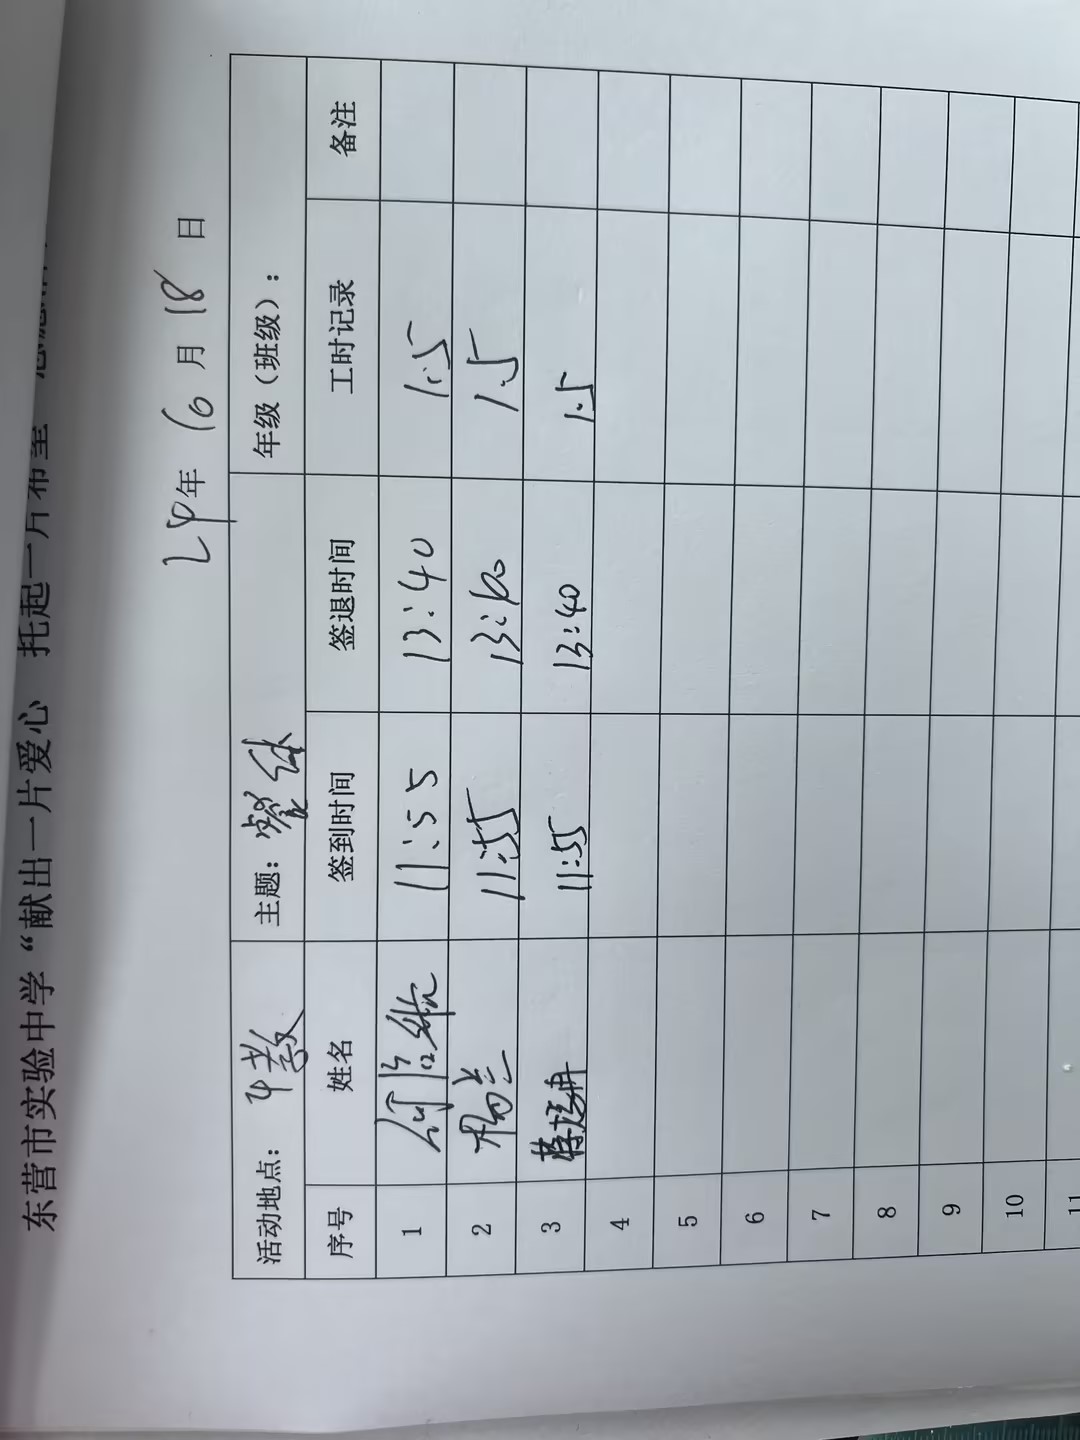 东营市实验中学“献出一片爱心 托起一片希望
24年 6月 18日
活动地点： 主题： 年级（班级）：
序号 姓名 签到时间 签退时间 工时记录 备注
1 11:55 13:40 1.5
2 杨兰 11:55 13:40 1.5
3 11:55 13:40 1.5
4
5
6
7
8
9
10
11